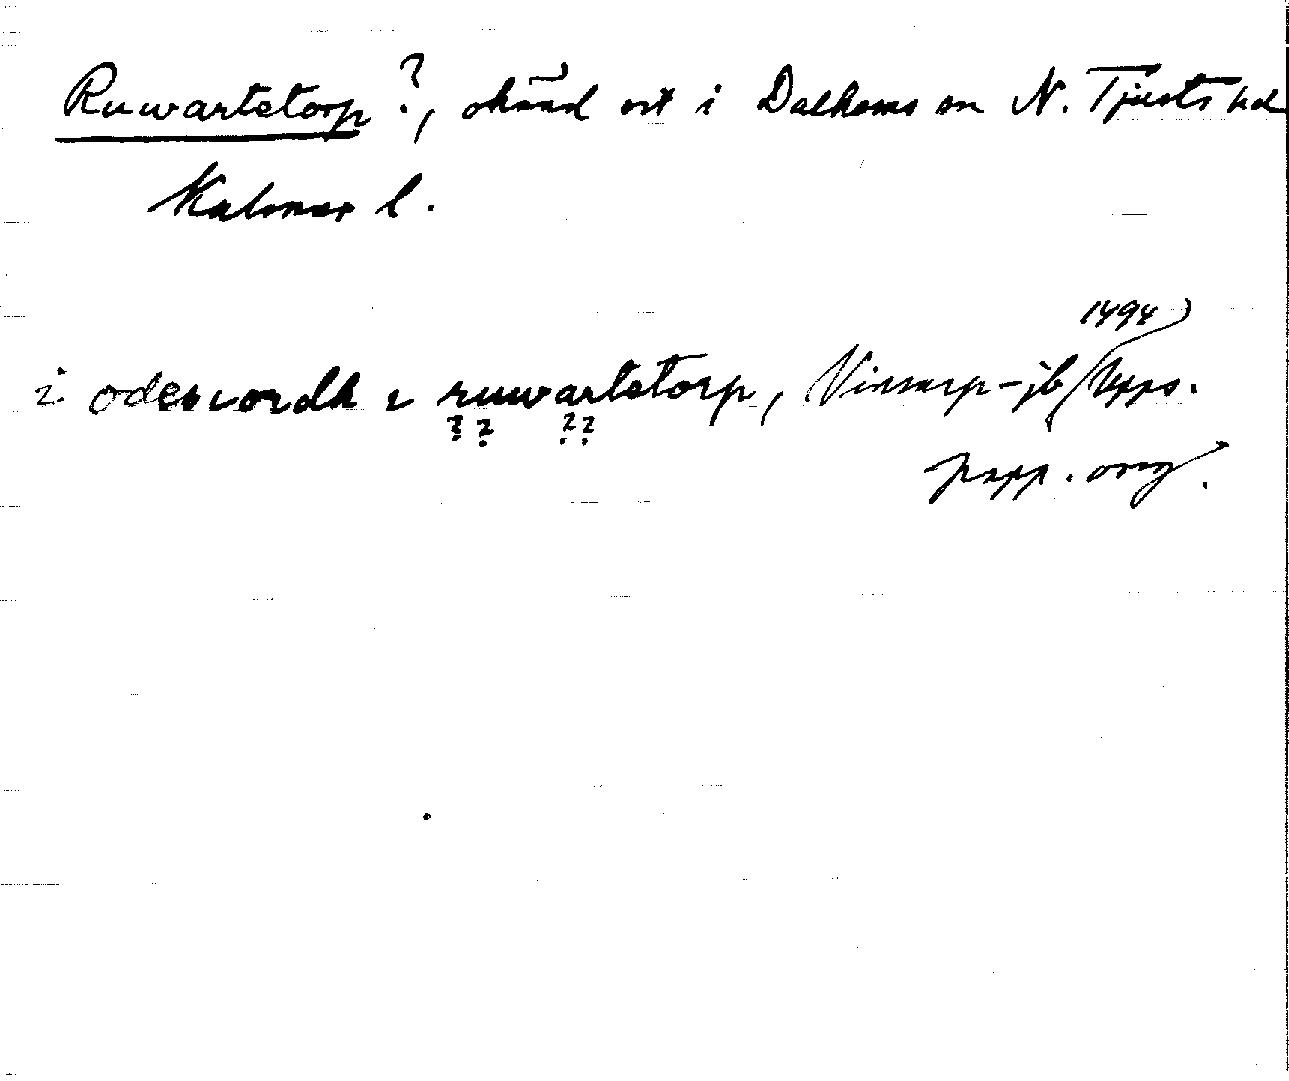 Ruwartetorp ?, okänd ort i Dalhems sn N. Tjusts hd
Kalmar l.
1494
i odesiordh i ruwartetorp, Vinsarp-jb Upps.
? ? ? ?
papp. orig.